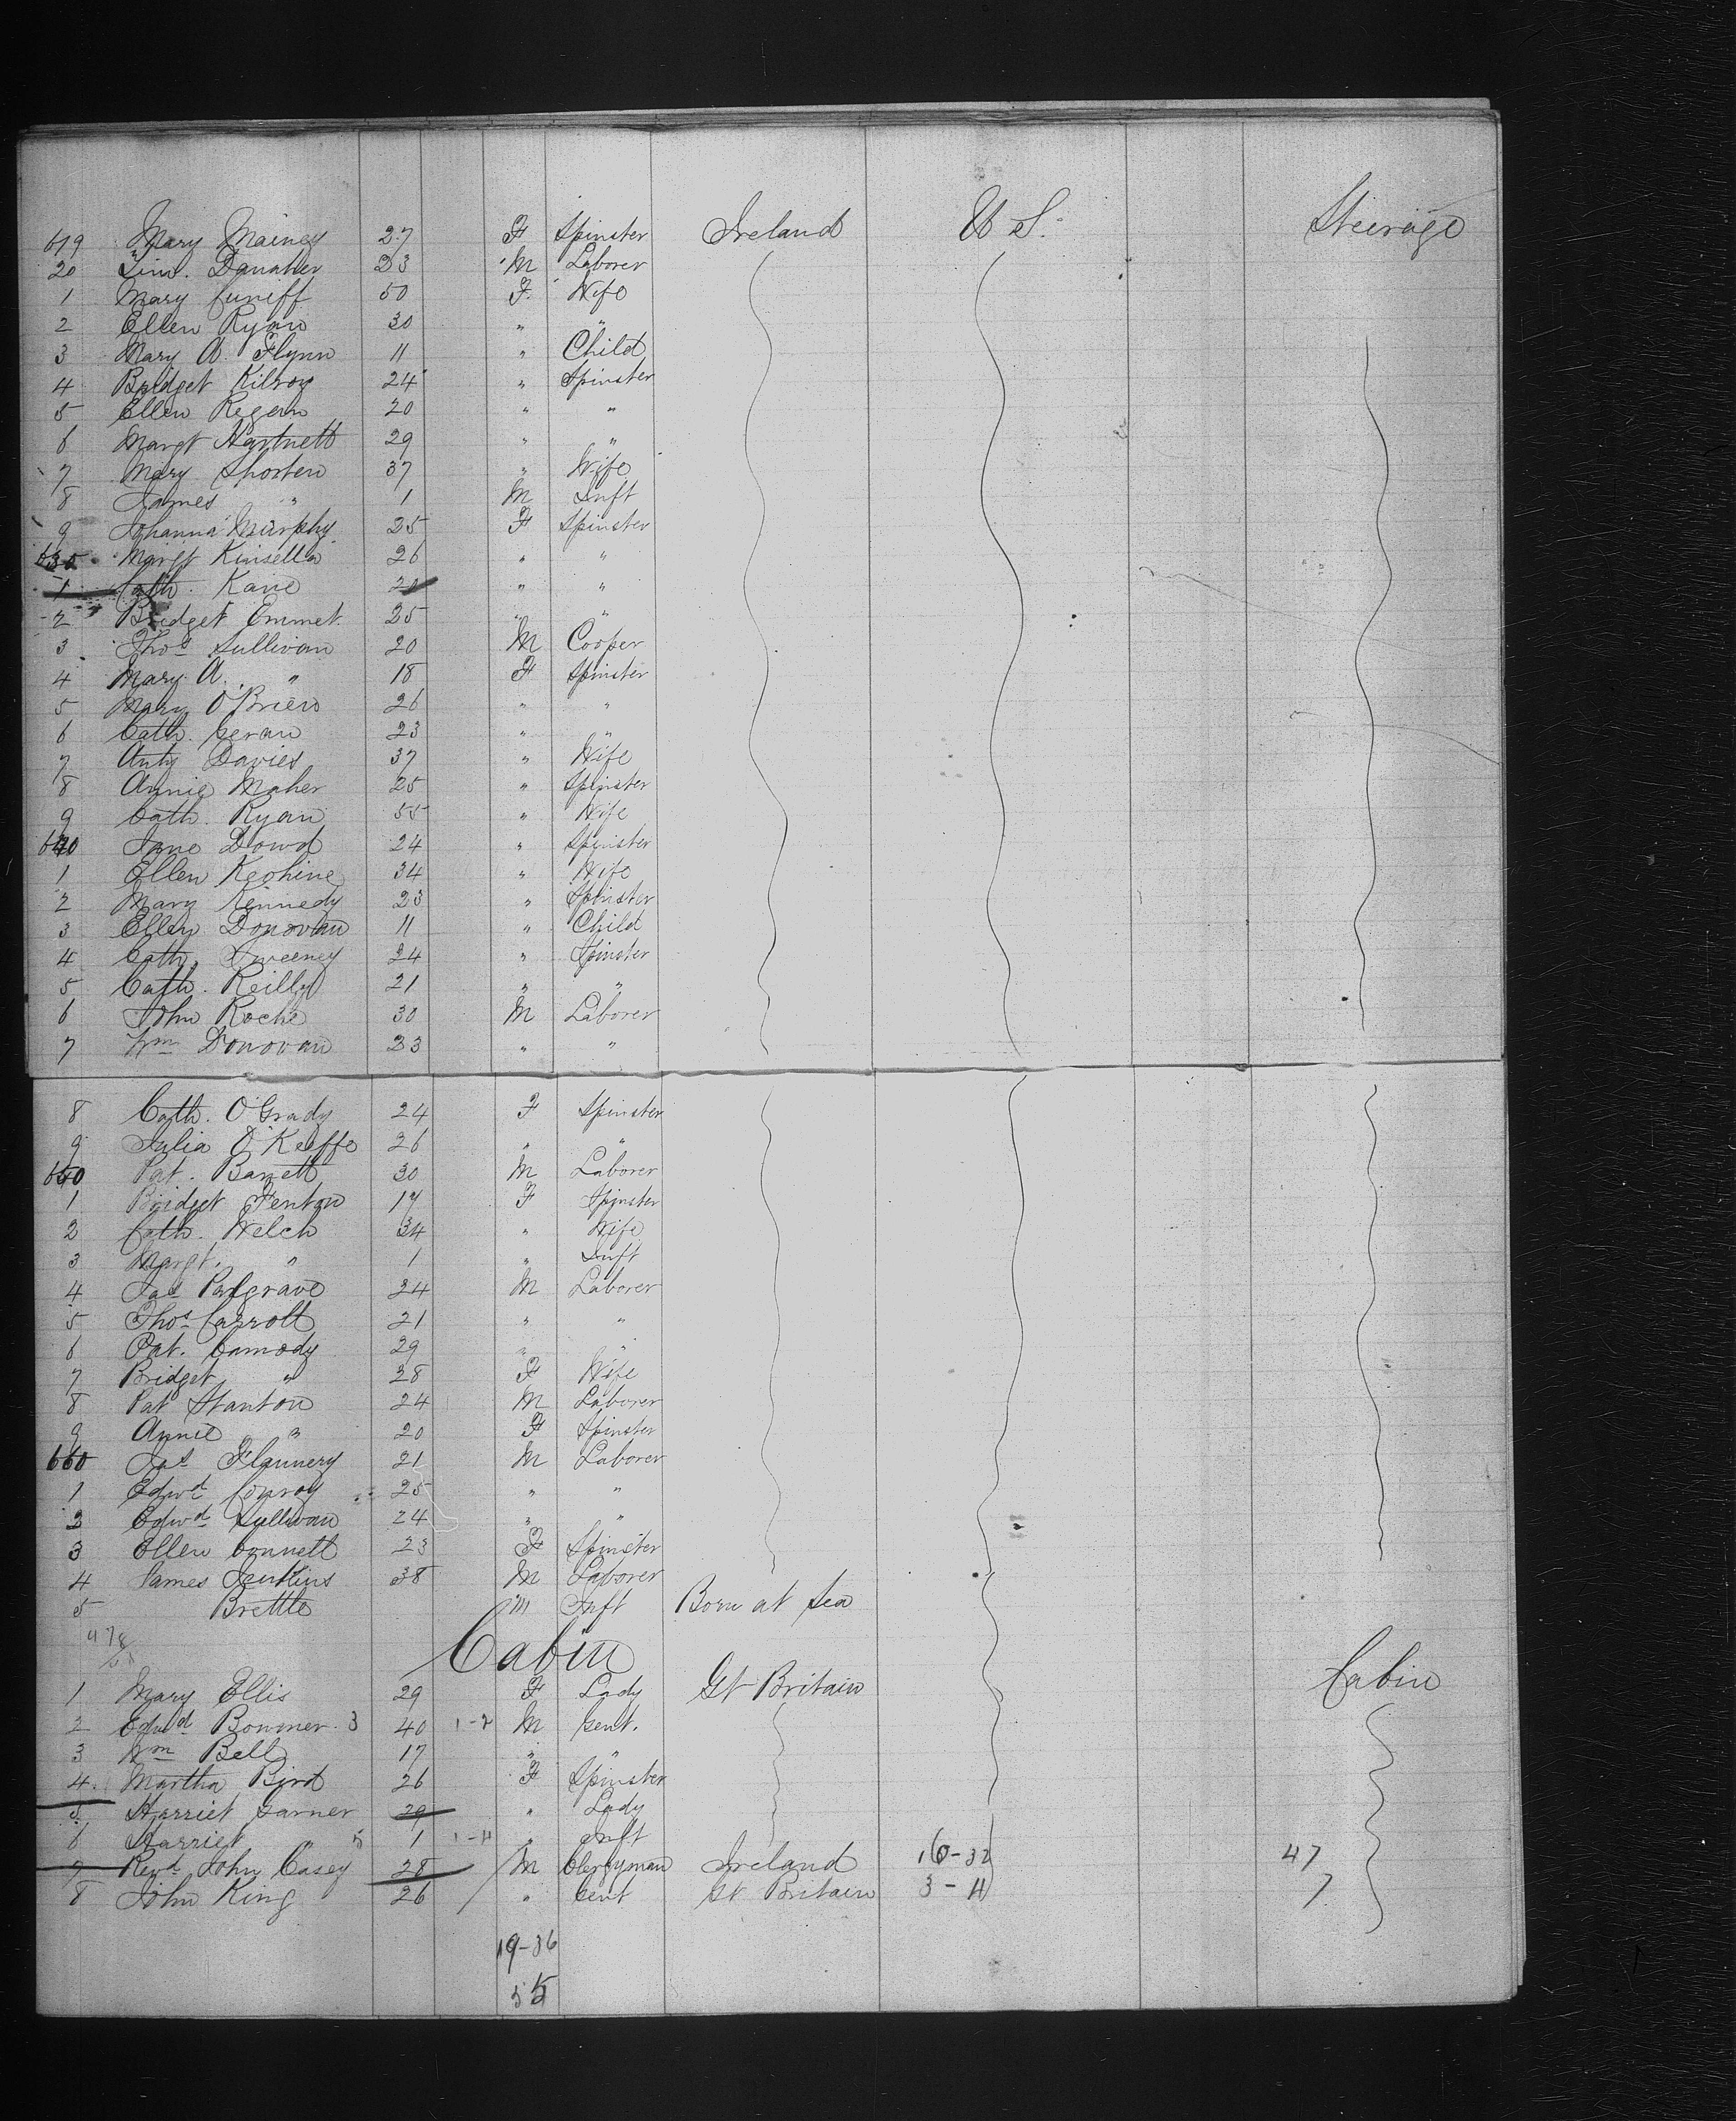 619 Mary Mainey 27 F Spinster Ireland U S. Steerage
20 Tim. Danaher 23 M Laborer
1 Mary Cuniff 50 F. Wife
2 Ellen Ryan 30 " "
3 Mary A. Flynn 11 " Child
4 Bridget Kilroy 24 " Spinster
5 Ellen Regan 20 " "
6 Margt Hartnett 29 " "
7 Mary Shorten 37 " Wife
8 James " 1 M Inft
9 Johanna Murphy 25 F Spinster
630 Margt Kinsella 26 " "
1 Cath. Kane 20 " "
2 Bridget Emmet. 25 " "
3 Thos Sullivan 20 M Cooper
4 Mary A. " 18 F Spinster
5 Mary O'Brien 26 " "
6 Cath. Ceran 23 " "
7 Anty Davies 37 " Wife
8 Annie Maher 25 " Spinster
9 Cath. Ryan 55 " Wife
640 Jane Dowd 24 " Spinster
1 Ellen Keohine 34 " Wife
2 Mary Kennedy 23 " Spinster
3 Ellen Donovan 11 " Child
4 Cath. Sweeney 24 " Spinster
5 Cath. Reilly 21 " "
6 John Roche 30 M Laborer
7 Wm Donovan 23 " "
8 Cath. O'Grady 24 F Spinster
9 Julia O'Keeffe 26 " "
650 Pat. Barrett 30 M Laborer
1 Bridget Fenton 17 F Spinster
2 Cath. Welch 34 " Wife
3 Margt. " 1 " Inft
4 Jas Palgrave 24 M Laborer
5 Thos Carroll 21 " "
6 Pat. Camody 29 " "
7 Bridget " 28 F Wife
8 Pat Stanton 24 M Laborer
9 Annie " 20 F Spinster
660 Jas Flannery 21 M Laborer
1 Edwd Conroy 25 " "
2 Edwd Sullivan 24 " "
3 Ellen Connell 23 F Spinster
4 James Jenkins 38 M Laborer
5 Brettle M Inft Born at Sea
478
Cabin Cabin
1 Mary Ellis 29 F Lady Gt Britain
2 Edwd Bowmer 3 40 1-2 M Gent.
3 Wm Bell 17 " "
4. Martha Bird 26 F Spinster
5. Harriet Garner 29 " Lady
6 Harriet " 5 1 1-4 " Inft
7 Revd John Casey 28 M Clergyman Ireland 16-32 47
8 John King 26 " Gent Gt Britain 3-4 7
19-36
55